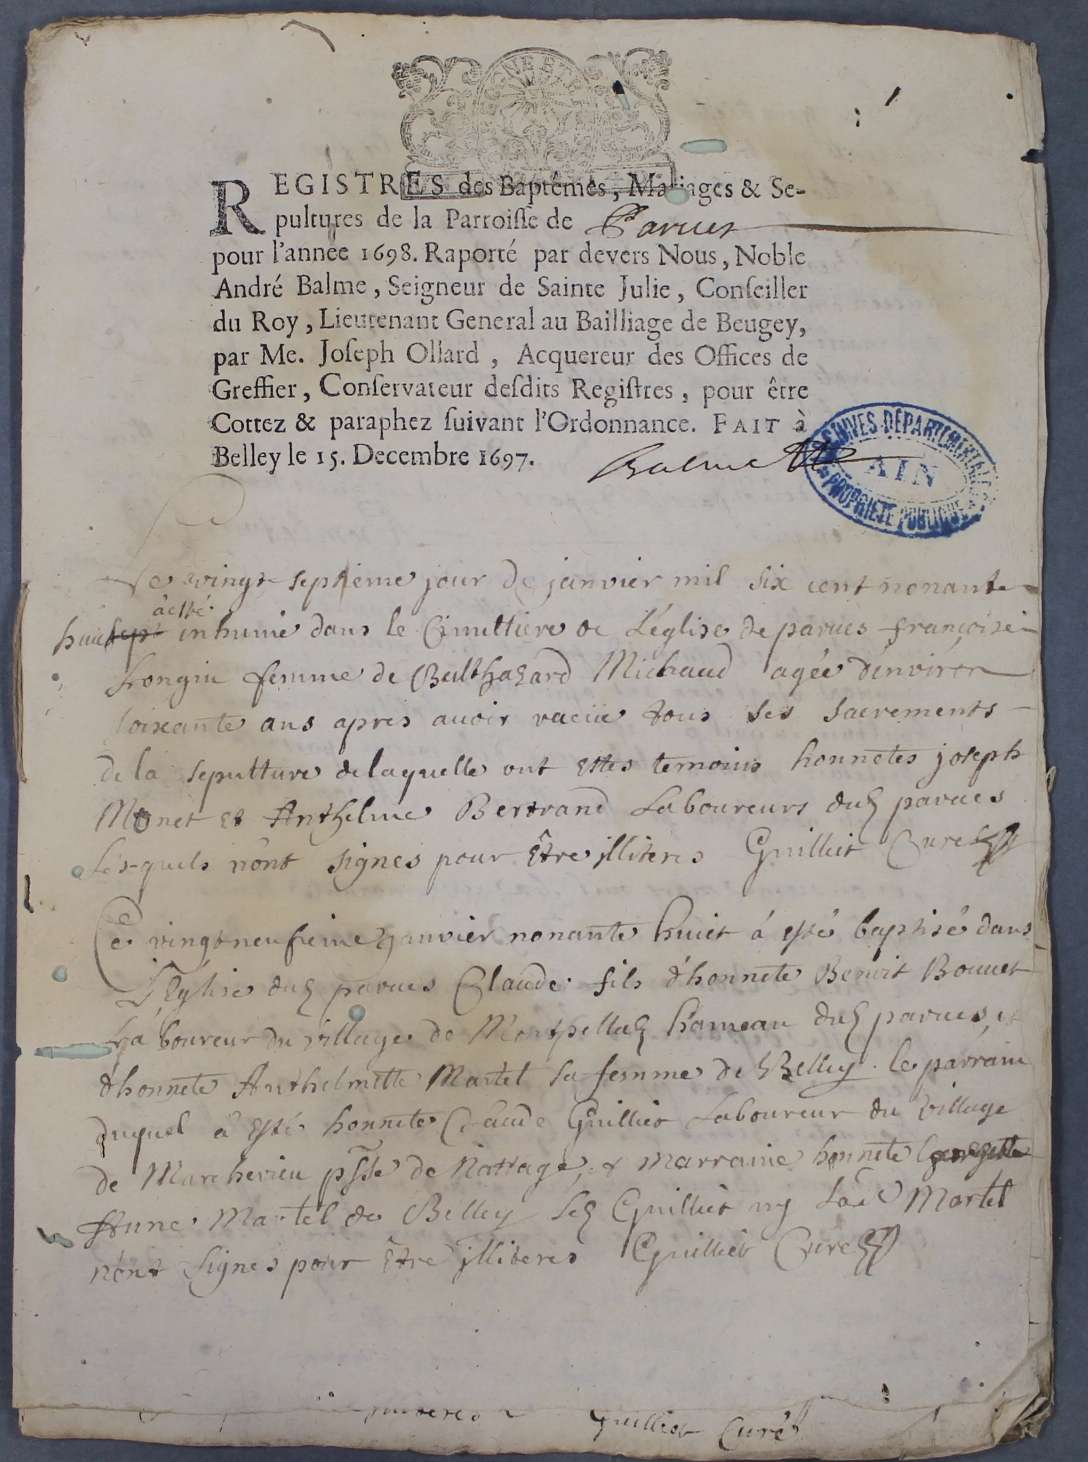 REGISTRES des Baptêmes, Mariages & Se-
pultures de la Parroisse de Parues
pour l'année 1698. Raporté par devers Nous, Noble
André Balme, Seigneur de Sainte Julie, Conseiller
du Roy, Lieutenant General au Bailliage de Beugey,
par Me. Joseph Ollard, Acquereur des Offices de
Greffier, Conservateur desdits Registres, pour être
Cottez & paraphez suivant l'Ordonnance. FAIT à
Belley le 15. Decembre 1697.
Balme
ARCHIVES DÉPARTEMENTALES
AIN
PROPRIÉTÉ PUBLIQUE
Le vingt septieme jour de janvier mil six cent nonante
à esté
huict sept inhumé dans le Cimettiere de L'église de parues françoise
femme de Balthazard Michaud agée d'environ
soixante ans apres auoir receüe tous ses sacrements
de la sepulture de laquelle ont estes temoins honnetes joseph
Monet et Anthelme Bertrand Laboureurs dud parues
Lesquels n'ont signes pour être illiteres Guilliet Curé
Ce vingt neufieme janvier nonante huict á esté baptisé dans
L'Eglise dud parues Claude fils d'honnete Benoit Bouuet
Laboureur du village de Montpellaz hameau dud parues, et
d'honnete Anthelmette Martel sa femme de Belley. le parrain
duquel à esté honnete Claude Guilliet Laboureur du village
de Marcherieu psse de Nattage, & marraine honnete Georgette
Anne Martel de Belley Led Guilliet ny Lad Martel
n'ont signes pour être illiteres Guilliet Curé
Guilliet Curé